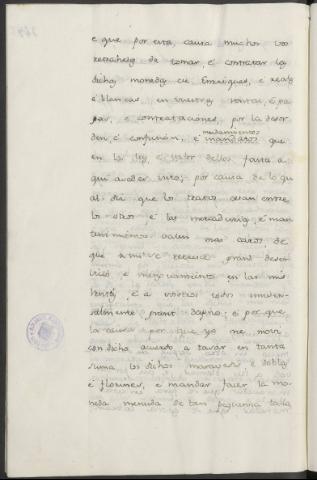 e que por esta causa muchos vos
rescehelys de tomar, é contratar las
dichas monedas de Enriques, e reales
é blancas, en vuestras ventas, é pa
gas, e contrataciones, por la desor
den, é confusion, é mudamientos
mandados que
en la ley e valor dellos fasta a
qui avedes visto; por causa de lo qu
al diz que los tratos cesan entre
los otros é las mercadurias, é man
tenimientos valen mas caros de
que a mi se recrece grand deser
vicio e menoscabamiento en las mis
rentas, é a vosotros todos univer-
salmente grant dapno; é por que
la causa por que yo me movi
con dicho acuerdo a tasar en tanta
suma los dichos maravedis é doblas
é florines, e mandar facer la mo
neda menuda de tan pequenna talla